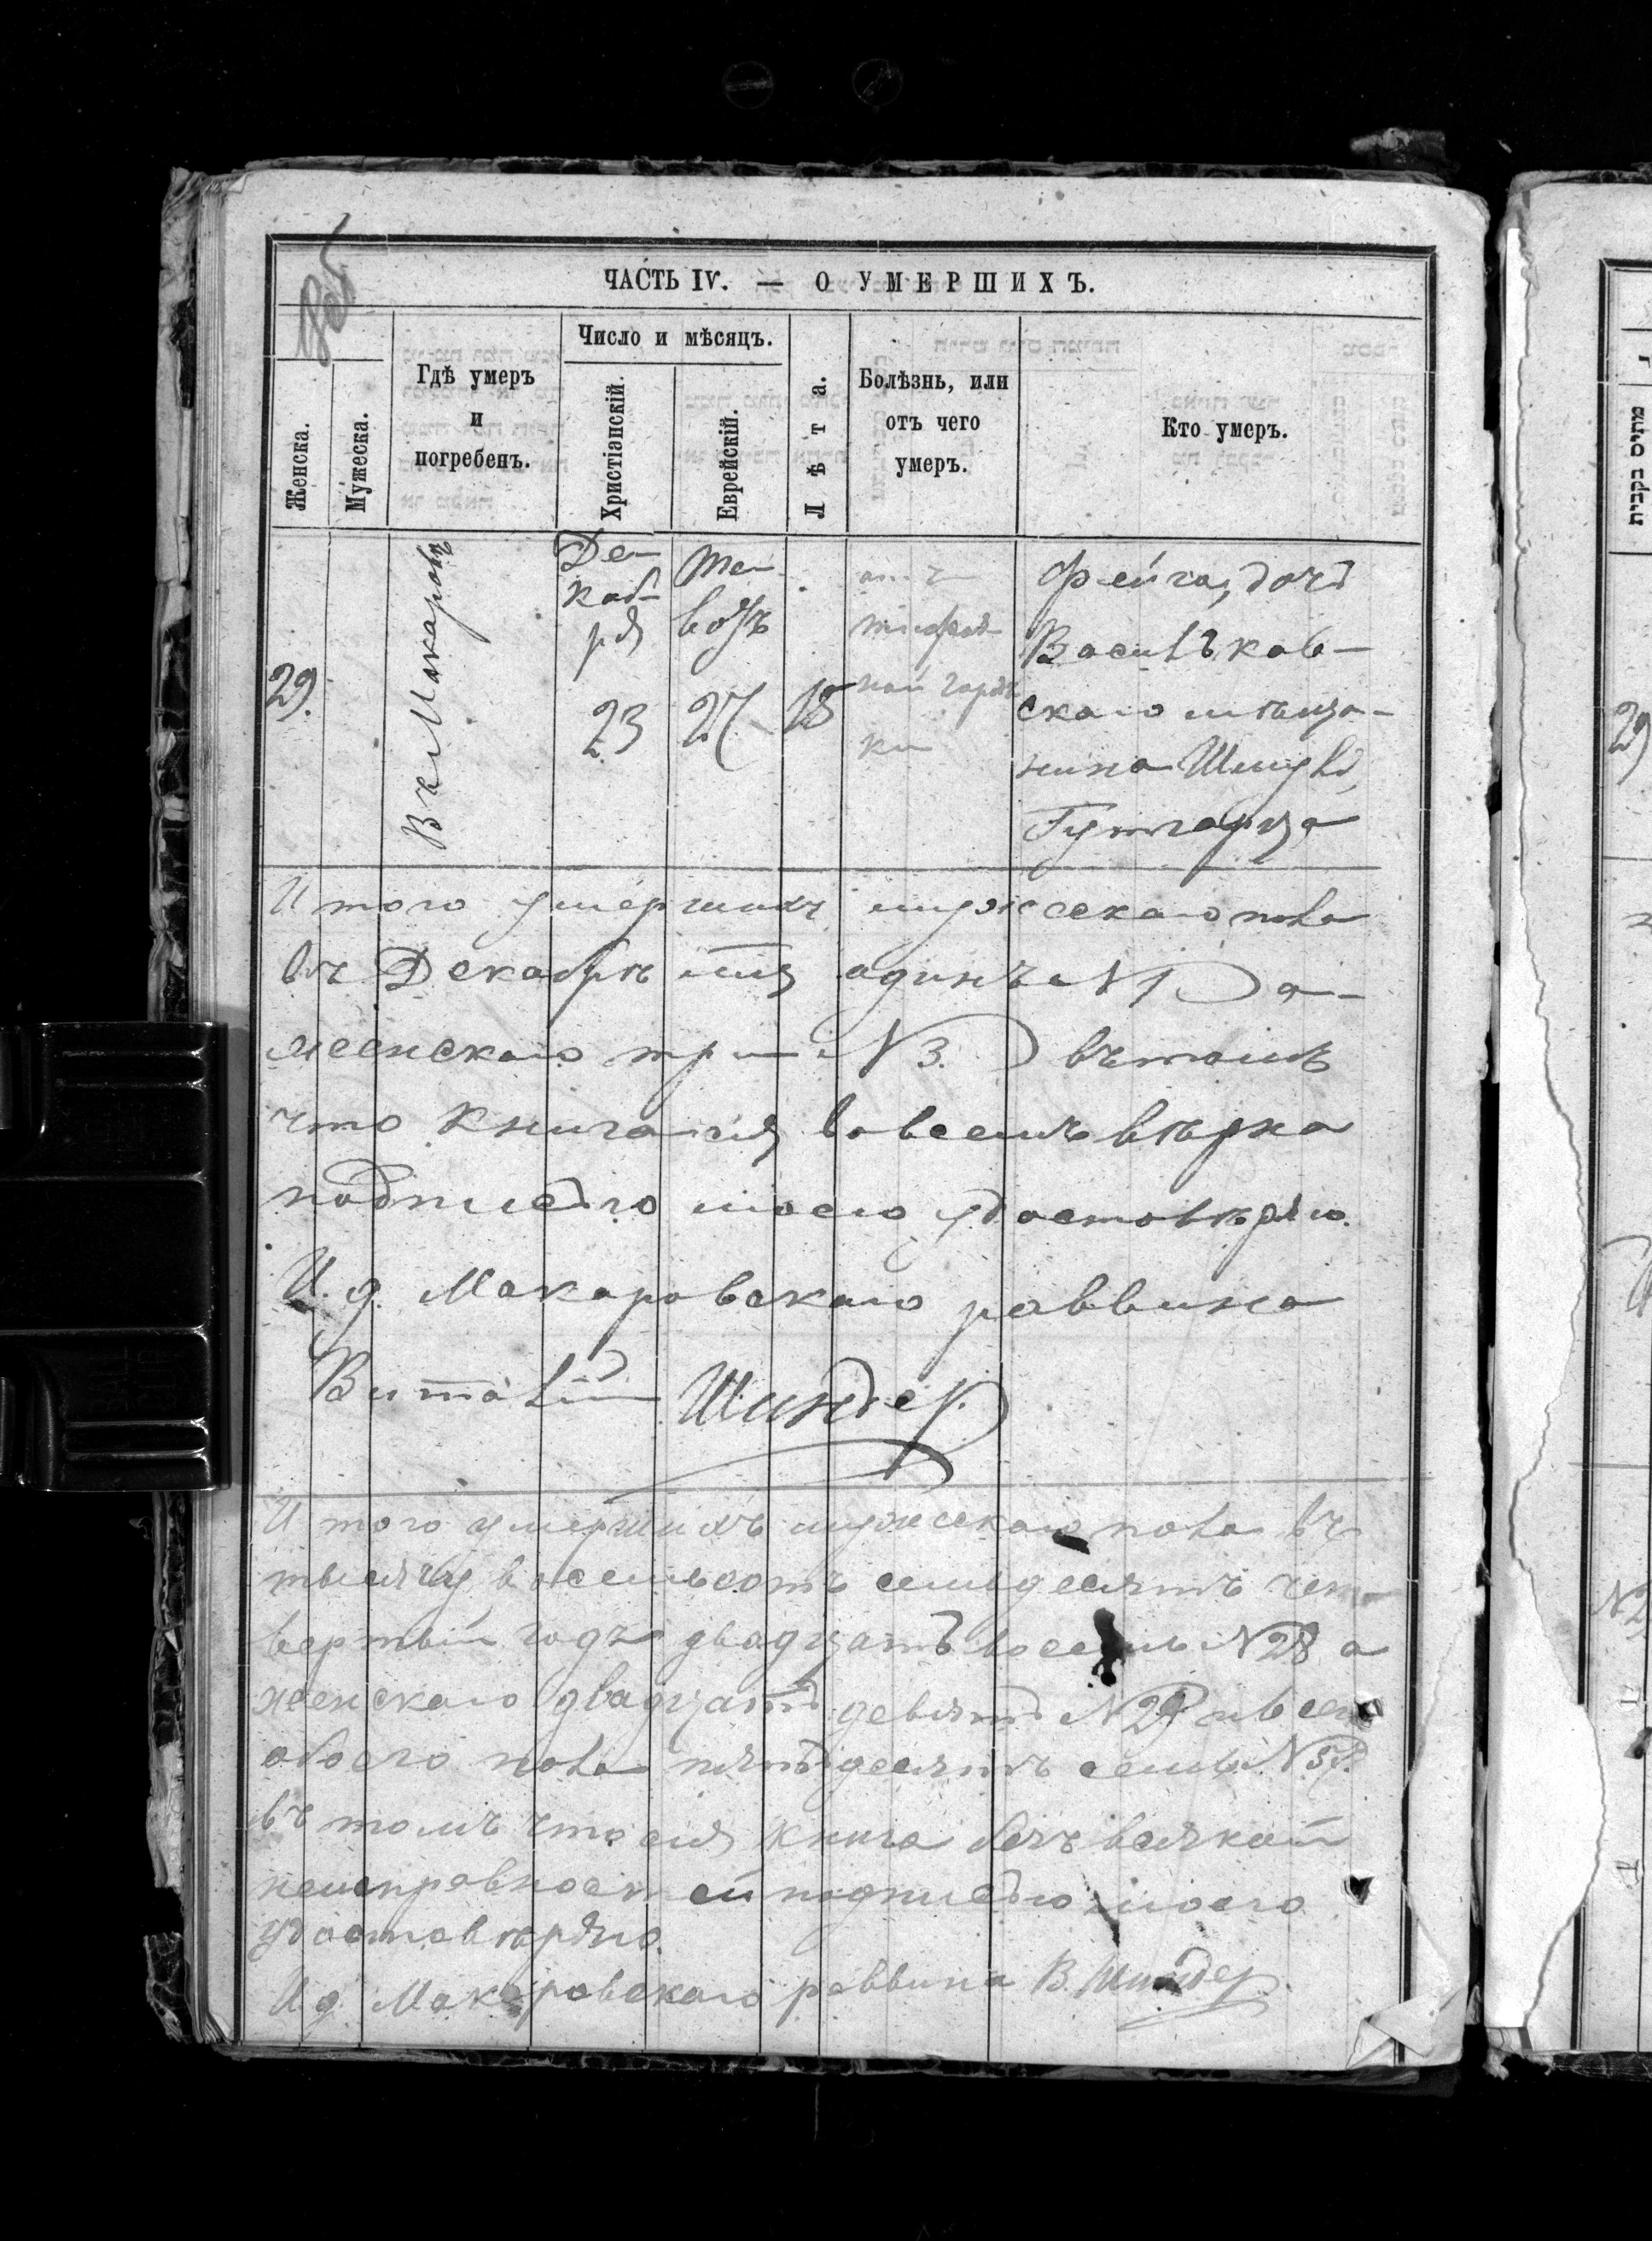 ЧАСТЬ IV. — О УМЕРШИХЪ.
Женска.
Мужеска.
Гдѣ умеръ
и
погребенъ.
Число и мѣсяцъ.
Христіанскій.
Еврейскій.
Лѣта.
Болѣзнь, или
отъ чего
умеръ.
Кто умеръ.
29.
Въ Макаровѣ
Де-
каб-
ря
23
Те-
вэтъ
27
18
отъ
тифоз-
ной горяч
ки
Фейга, дочь
Васильков-
скаго мѣща-
нина Шмуля
Гутгарца
Итого умершихъ мужескаго пола
въ Декабрѣ м-ця одинъ N 1 а
женскаго три N 3. въ томъ
что книга сія во всемъ вѣрна
подписью моею удостовѣряю.
И. д. Макаровскаго раввина
Виталій Шиндер
Итого умершихъ мужескаго пола въ
тысячу восемьсотъ семьдесятъ чет-
вертый годъ двадцать восемь N 28 а
женскаго двадцать девять N 29 и всего
обоего пола пятьдесятъ семь N 57.
въ томъ что сія книга безъ всякой
неисправностей подписью моею
удостовѣряю.
И д. Макаровскаго раввина В. Шиндер
29